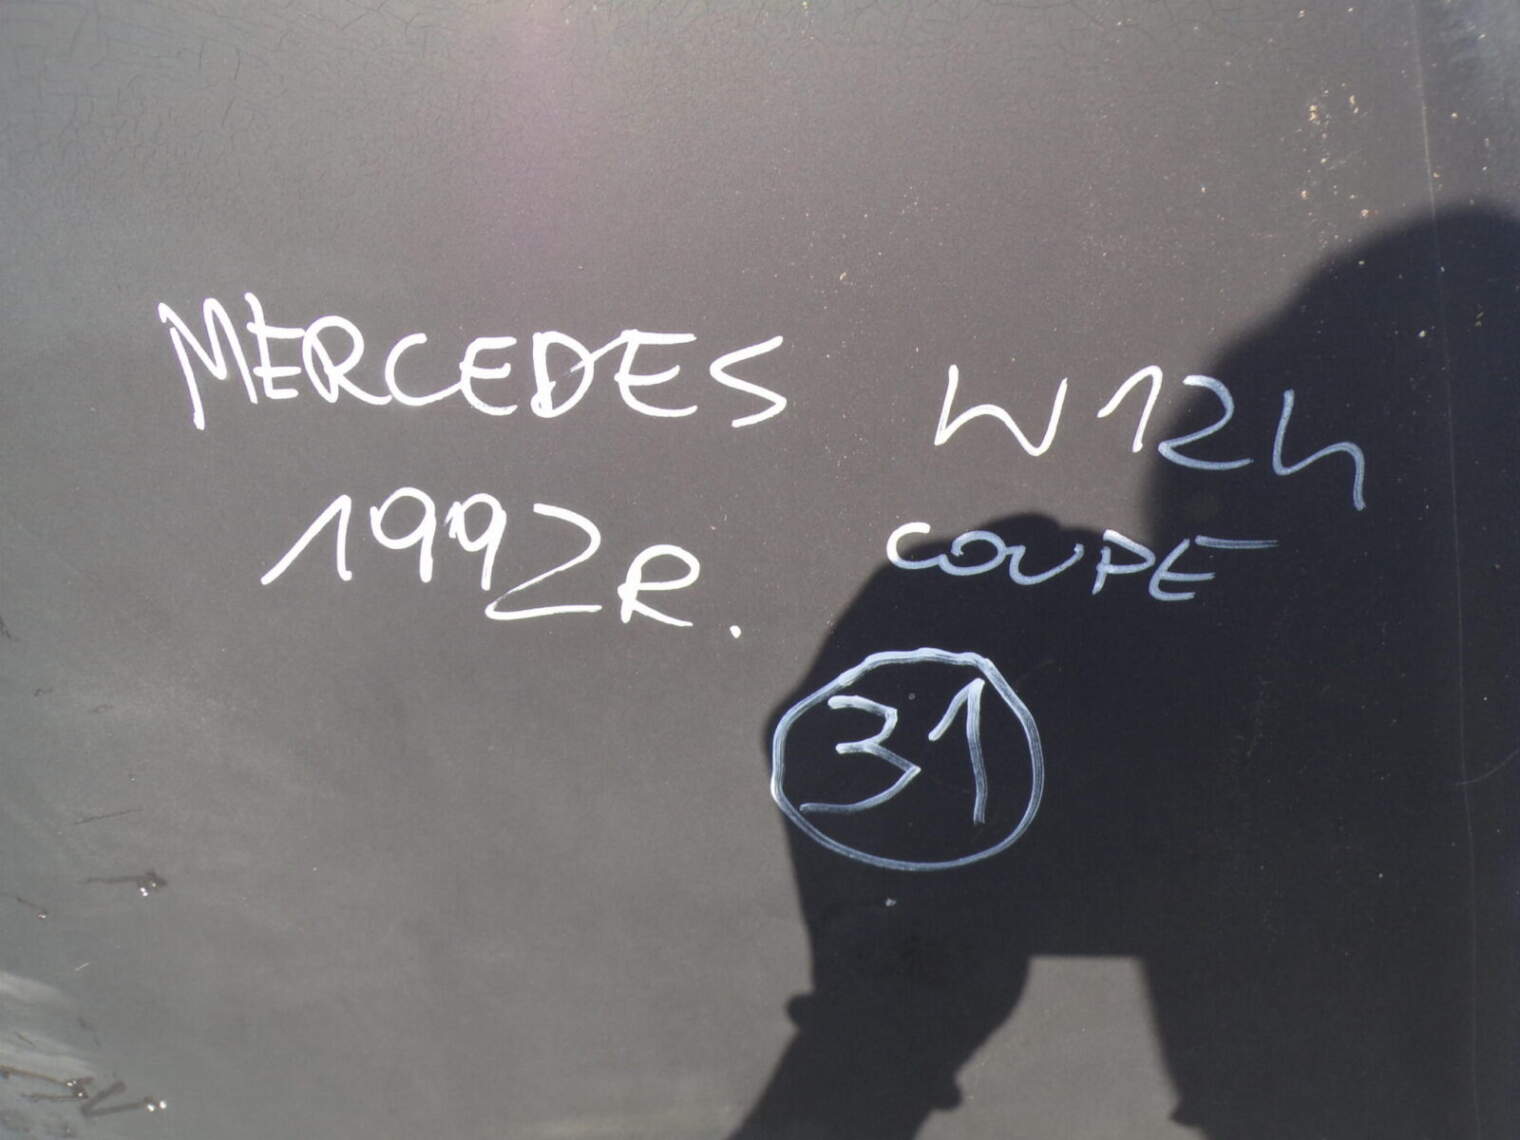 MERCEDES W124
1992R. COUPE
31